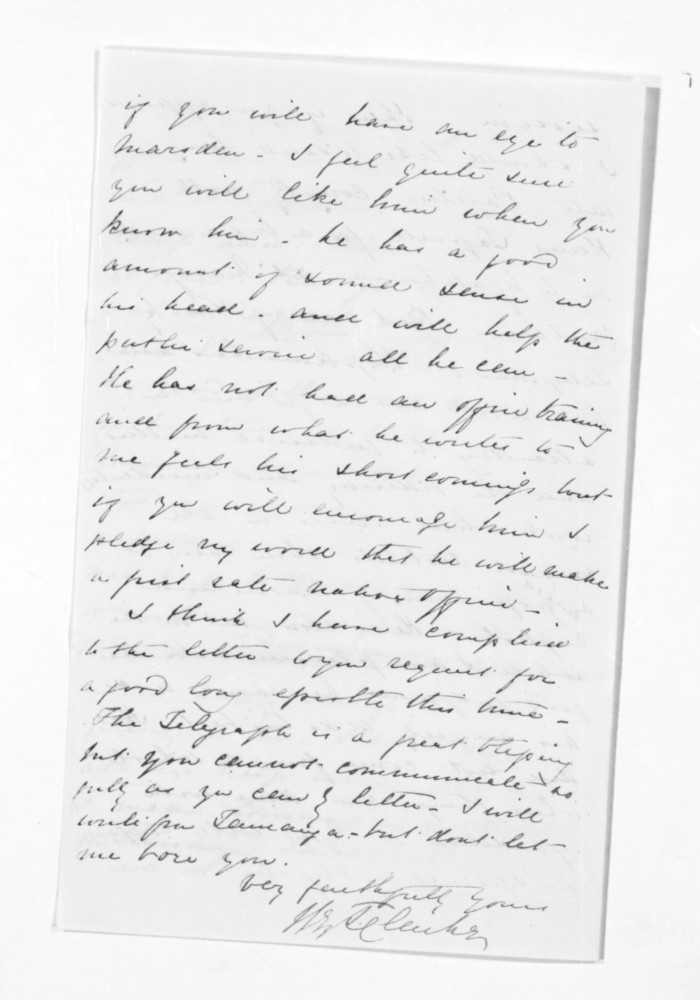 if you will have an eye to
Marsden - I feel quite sure
you will like him when you
know him - he has a good
amount of sound sense in
his head - and will help the
public service all he can -
He has not had an office training
and from what he writes to
me feels his short comings but
if you will encourage him I
pledge my word that he will make
a first rate native officer -
I think I have complied
to the letter to your request for
a good long epistle this time -
The Telegraph is a great blessing
but you cannot communicate as
fully as you can by letter - I will
write from Tauranga - but dont let
me bore you.
Very faithfully yours
H T Clarke